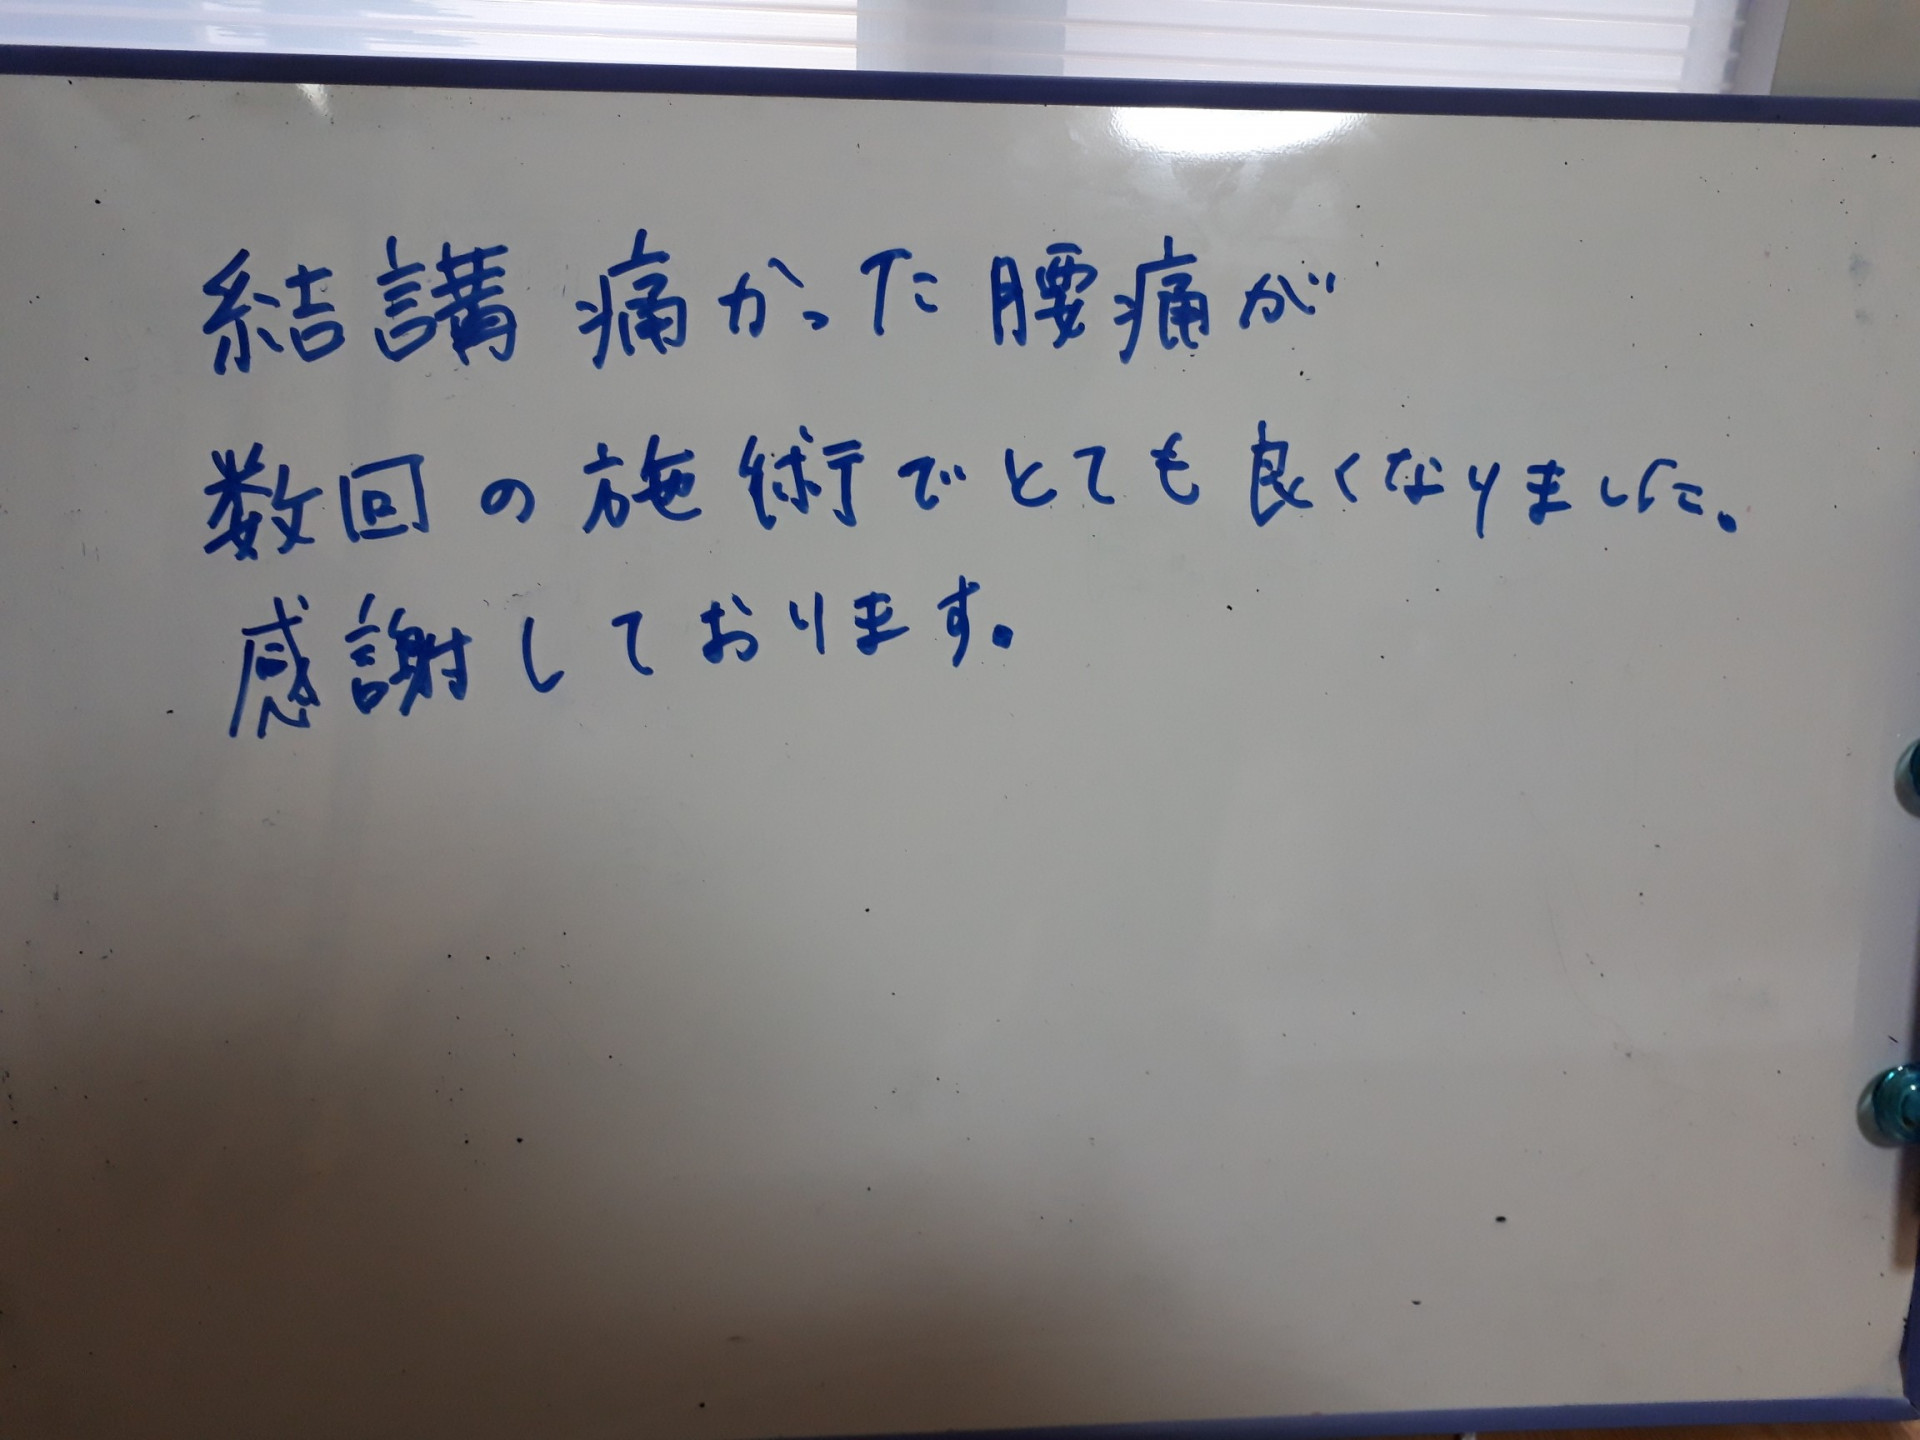 結講 痛かった腰痛が
数回の施術でとても良くなりました。
感謝しております。